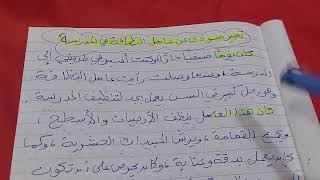 تعبير سردي عن عامل النظافة في المدرسة
كان يومًا صيفيًا حارًا وكنت أسير في طريقي إلى
المدرسة، وعندما وصلت رأيت عامل النظافة
وهو رجل كبير في السن يعمل بجد لتنظيف المدرسة
كان هذا العامل ينظف الأرضيات والأسطح،
ويجمع القمامة، ويرش المبيدات الحشرية، وكما
كان يعمل بدقة وعناية، وكان يحرص على أن تكون